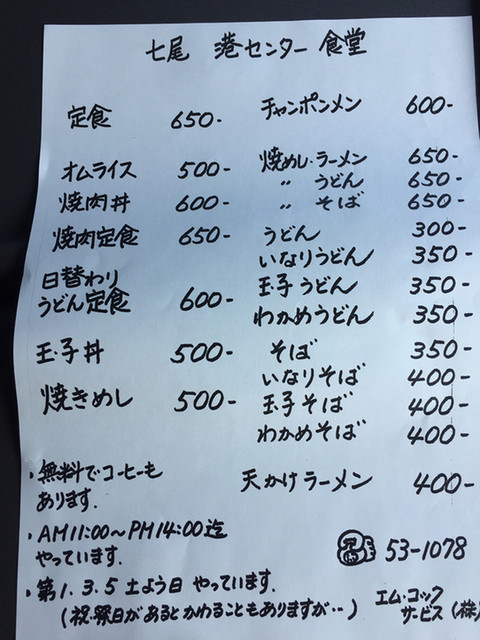 七尾 港センター 食堂
定食 650-
オムライス 500-
焼肉丼 600-
焼肉定食 650-
日替わり
うどん定食 600-
玉子丼 500-
焼きめし 500-
チャンポンメン 600-
焼めし・ラーメン 650-
〃 うどん 650-
〃 そば 650-
うどん 300-
いなりうどん 350-
玉子うどん 350-
わかめうどん 350-
そば 350-
いなりそば 400-
玉子そば 400-
わかめそば 400-
天かけラーメン 400-
・無料でコーヒーも
あります.
・AM11:00〜PM14:00迄
やっています.
・第1.3.5土よう日 やっています.
(祝・祭日があるとかわることもありますが…)
53-1078
エム・コック
サービス(株)